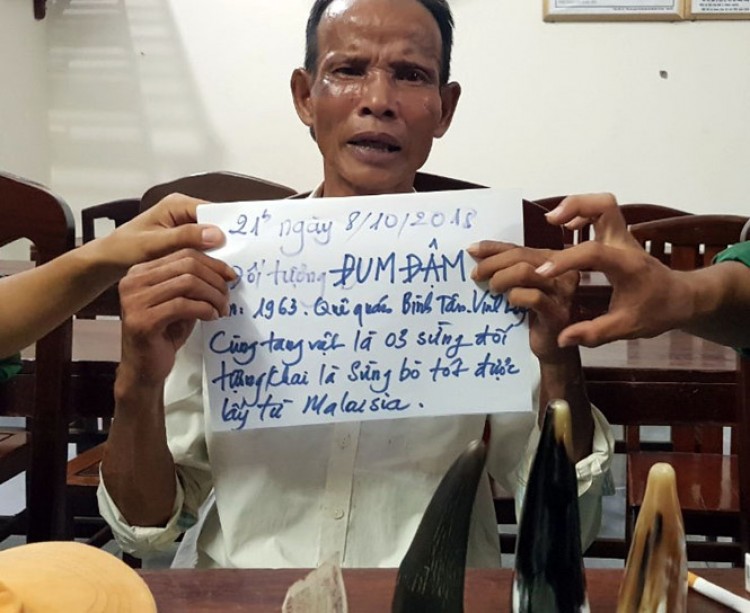 21h ngày 8/10/2018
Đối tượng ĐUM ĐẬM
1963. Quê quán Bình Tân. Vĩnh
Cùng tang vật là 03 sừng đối
tượng khai là sừng bò tót được
lấy từ Malaisia.